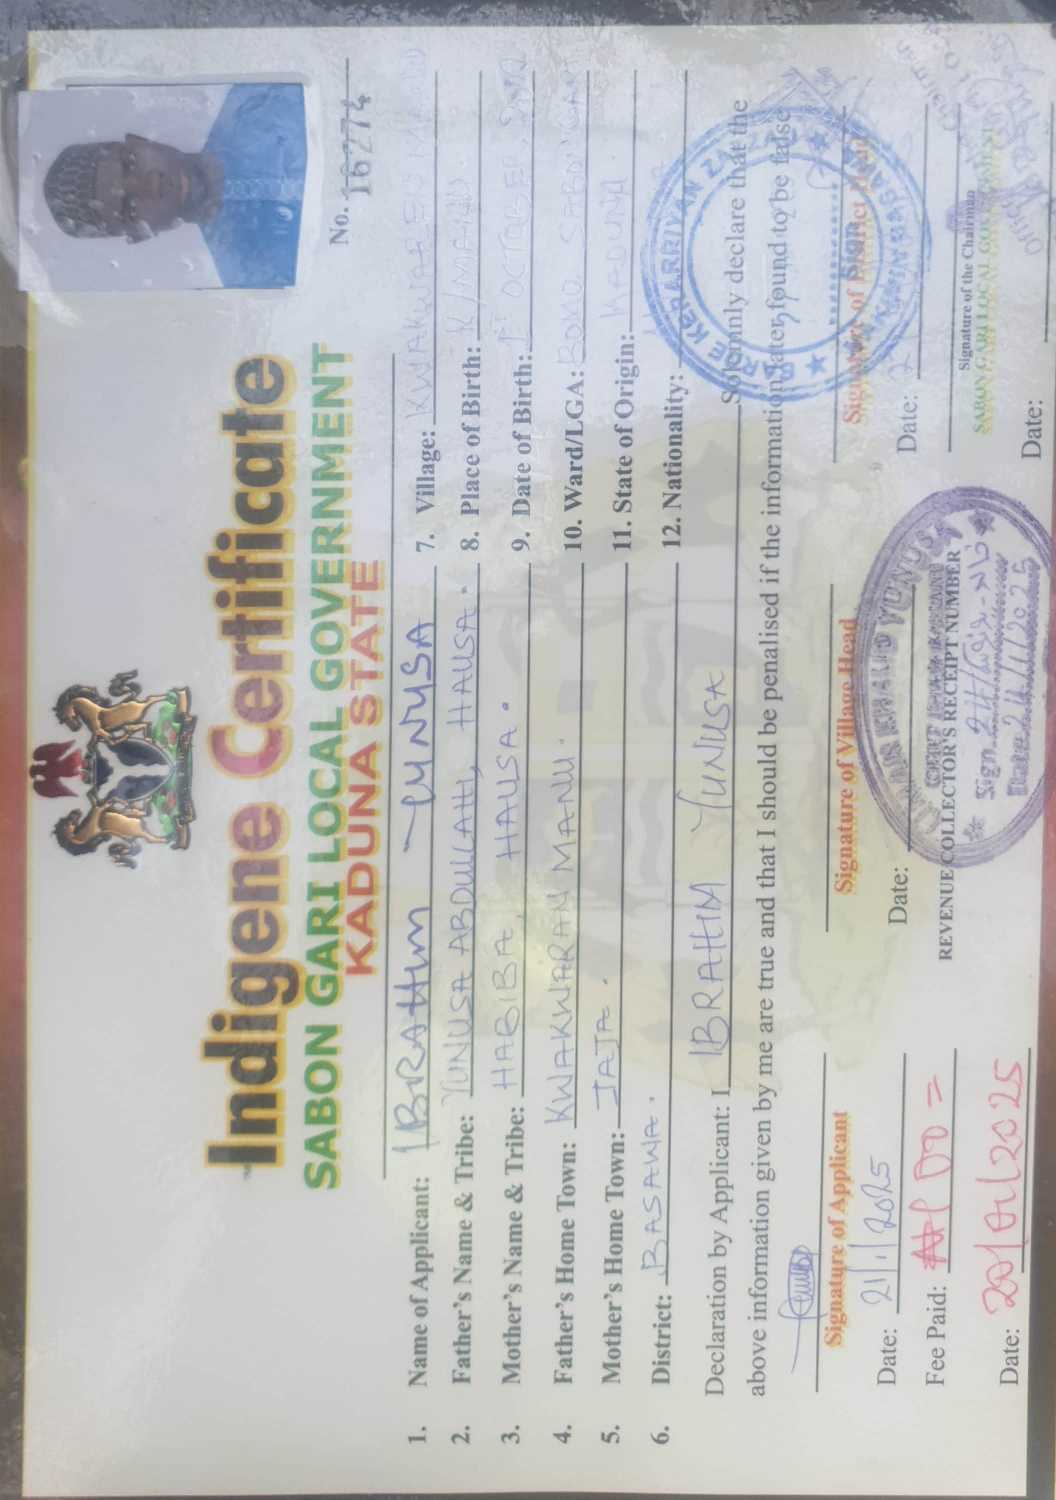 Indigene Certificate
SABON GARI LOCAL GOVERNMENT
KADUNA STATE
No. 162774
1. Name of Applicant: IBRAHIM YUNUSA
2. Father's Name & Tribe: YUNUSA ABDULLAHI, HAUSA.
3. Mother's Name & Tribe: HABIBA, HAUSA.
4. Father's Home Town: KWAKWARAN MANU.
5. Mother's Home Town: JAJA.
6. District: BASAWA.
7. Village: KWAKWAREN
8. Place of Birth: K/MANU.
9. Date of Birth: OCTOBER
10. Ward/LGA: SABON GARI
11. State of Origin: KADUNA.
12. Nationality:
Declaration by Applicant: I IBRAHIM YUNUSA Solemnly declare that the
above information given by me are true and that I should be penalised if the information later found to be false
Signature of Applicant
Date: 21/1/2025
Signature of Village Head
Date:
Signature of District Head
Date:
Fee Paid:
REVENUE COLLECTOR'S RECEIPT NUMBER
Signature of the Chairman
SABON GARI LOCAL GOVERNMENT
Date: 20/01/2025
Date:
YUNUSA
Sign
Date 21/1/2025